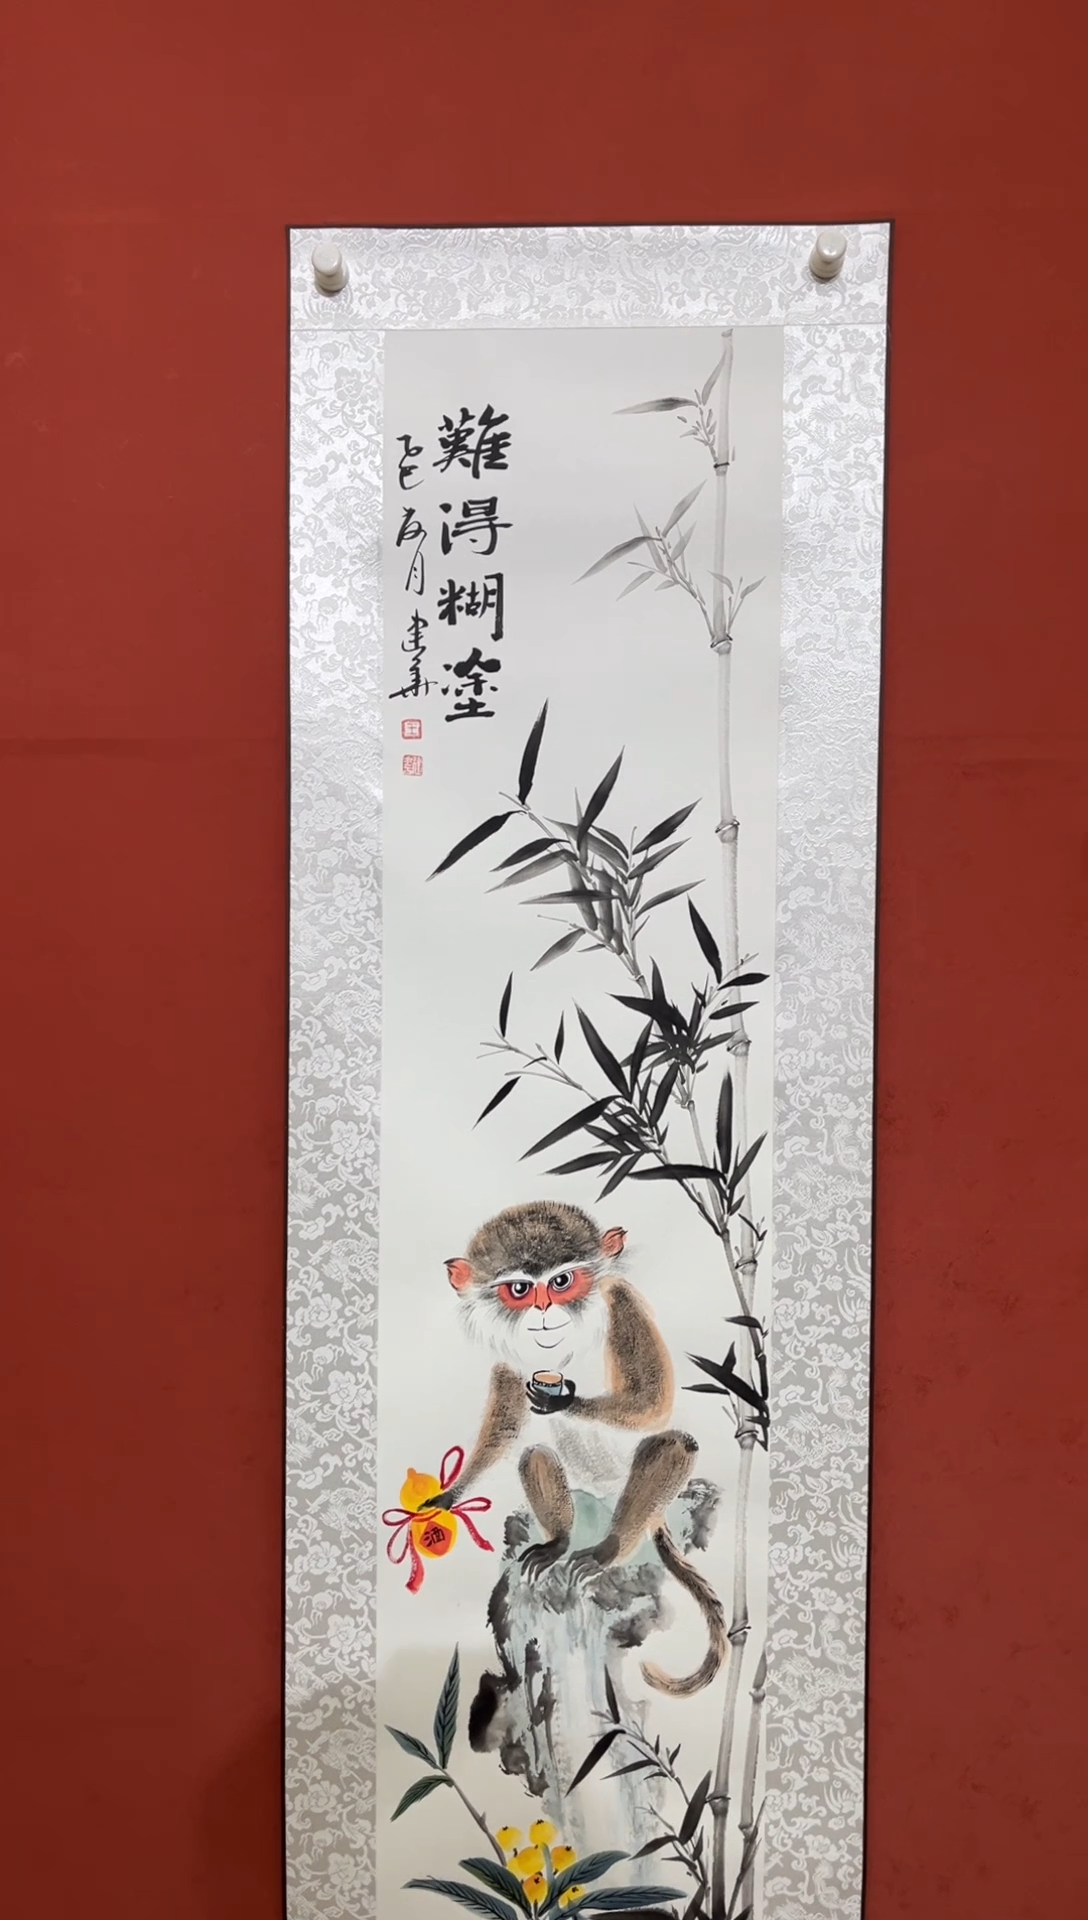 難得糊塗
乙巳夏月建華
酒